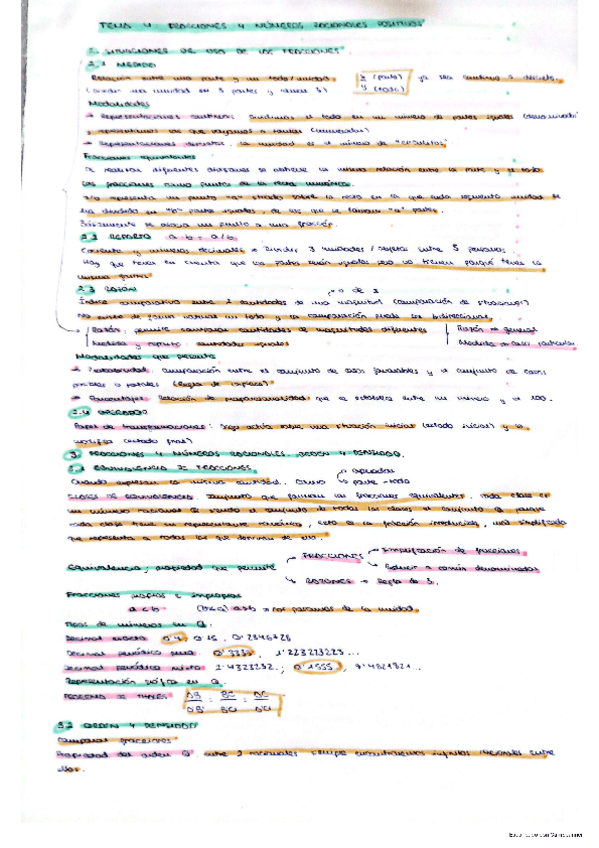 TEMA 4. FRACCIONES Y NÚMEROS RACIONALES POSITIVOS
2. SITUACIONES DE USO DE LAS FRACCIONES
2.1 MEDIDA
Relación entre una parte y un todo/unidad. x (parte) ya sea continua o discreta.
(Dividir una unidad en 5 partes y tomar 3) y (todo)
Modalidades
→ Representaciones continuas. Dividimos el todo en un número de partes iguales (denominador)
y representamos las que vayamos a tomar (numerador)
→ Representaciones discretas. La unidad es el número de
Fracciones equivalentes
Al realizar diferentes divisiones se obtiene la misma relación entre la parte y el todo
Las fracciones como puntos de la recta numérica.
representa un punto situado sobre la recta en la que cada segmento unidad se
ha dividido en "b" partes iguales, de las que se toman "a" partes.
2.2 REPARTO a : b = a/b
Cociente y números decimales → Dividir 3 unidades/objetos entre 5 personas.
Hay que tener en cuenta que las partes serán iguales pero no tienen porqué tener la
misma forma
2.3 RAZÓN 2 de 3
Índice comparativo entre 2 cantidades de una magnitud (comparación de situaciones)
No existe de forma natural un todo y la comparación puede ser bidireccional.
Razón: permite comparar cantidades de magnitudes diferentes Razón → general
Medida y reparto: cantidades iguales Medida → caso particular
Modalidades que presenta
→ Probabilidad. Comparación entre el conjunto de casos favorables y el conjunto de casos
posibles o totales (Regla de Laplace)
→ Porcentajes. Relación de proporcionalidad que se establece entre un número y el 100.
2.4 OPERADOR
Papel de transformaciones: algo actúa sobre una situación inicial (estado inicial) y la
modifica (estado final)
3. FRACCIONES Y NÚMEROS RACIONALES. ORDEN Y DENSIDAD.
3.1 EQUIVALENCIA DE FRACCIONES
Cuando expresan la misma cantidad. Como operador
parte-todo
CLASES DE EQUIVALENCIA. Conjunto que forman las fracciones equivalentes. Toda clase es
un número racional Q siendo el conjunto de todas las clases el conjunto Q porque
cada clase tiene un representante canónico, esto es la fracción irreducible, más simplificada
que representa a todas las que derivan de ella.
FRACCIONES → Simplificación de fracciones
Equivalencia; propiedad que permite Reducir a común denominador
RAZONES → Regla de 3.
Fracciones propias e impropias
a<b (b<a) a>b → nos pasamos de la unidad.
Tipos de números en Q.
Decimal exacto 0'4; 0'15, 0'2846728
Decimal periódico puro 0'3333, 1'223223223...
Decimal periódico mixto 1'4323232.; 0'1555; 7'4821821...
Representación gráfica en Q.
TEOREMA DE THALES AB/A'B' = BC/B'C' =
3.2 ORDEN Y DENSIDAD
Comparar fracciones
Propiedad del orden Q. entre 2 racionales siempre encontraremos infinitos racionales entre
ellos.